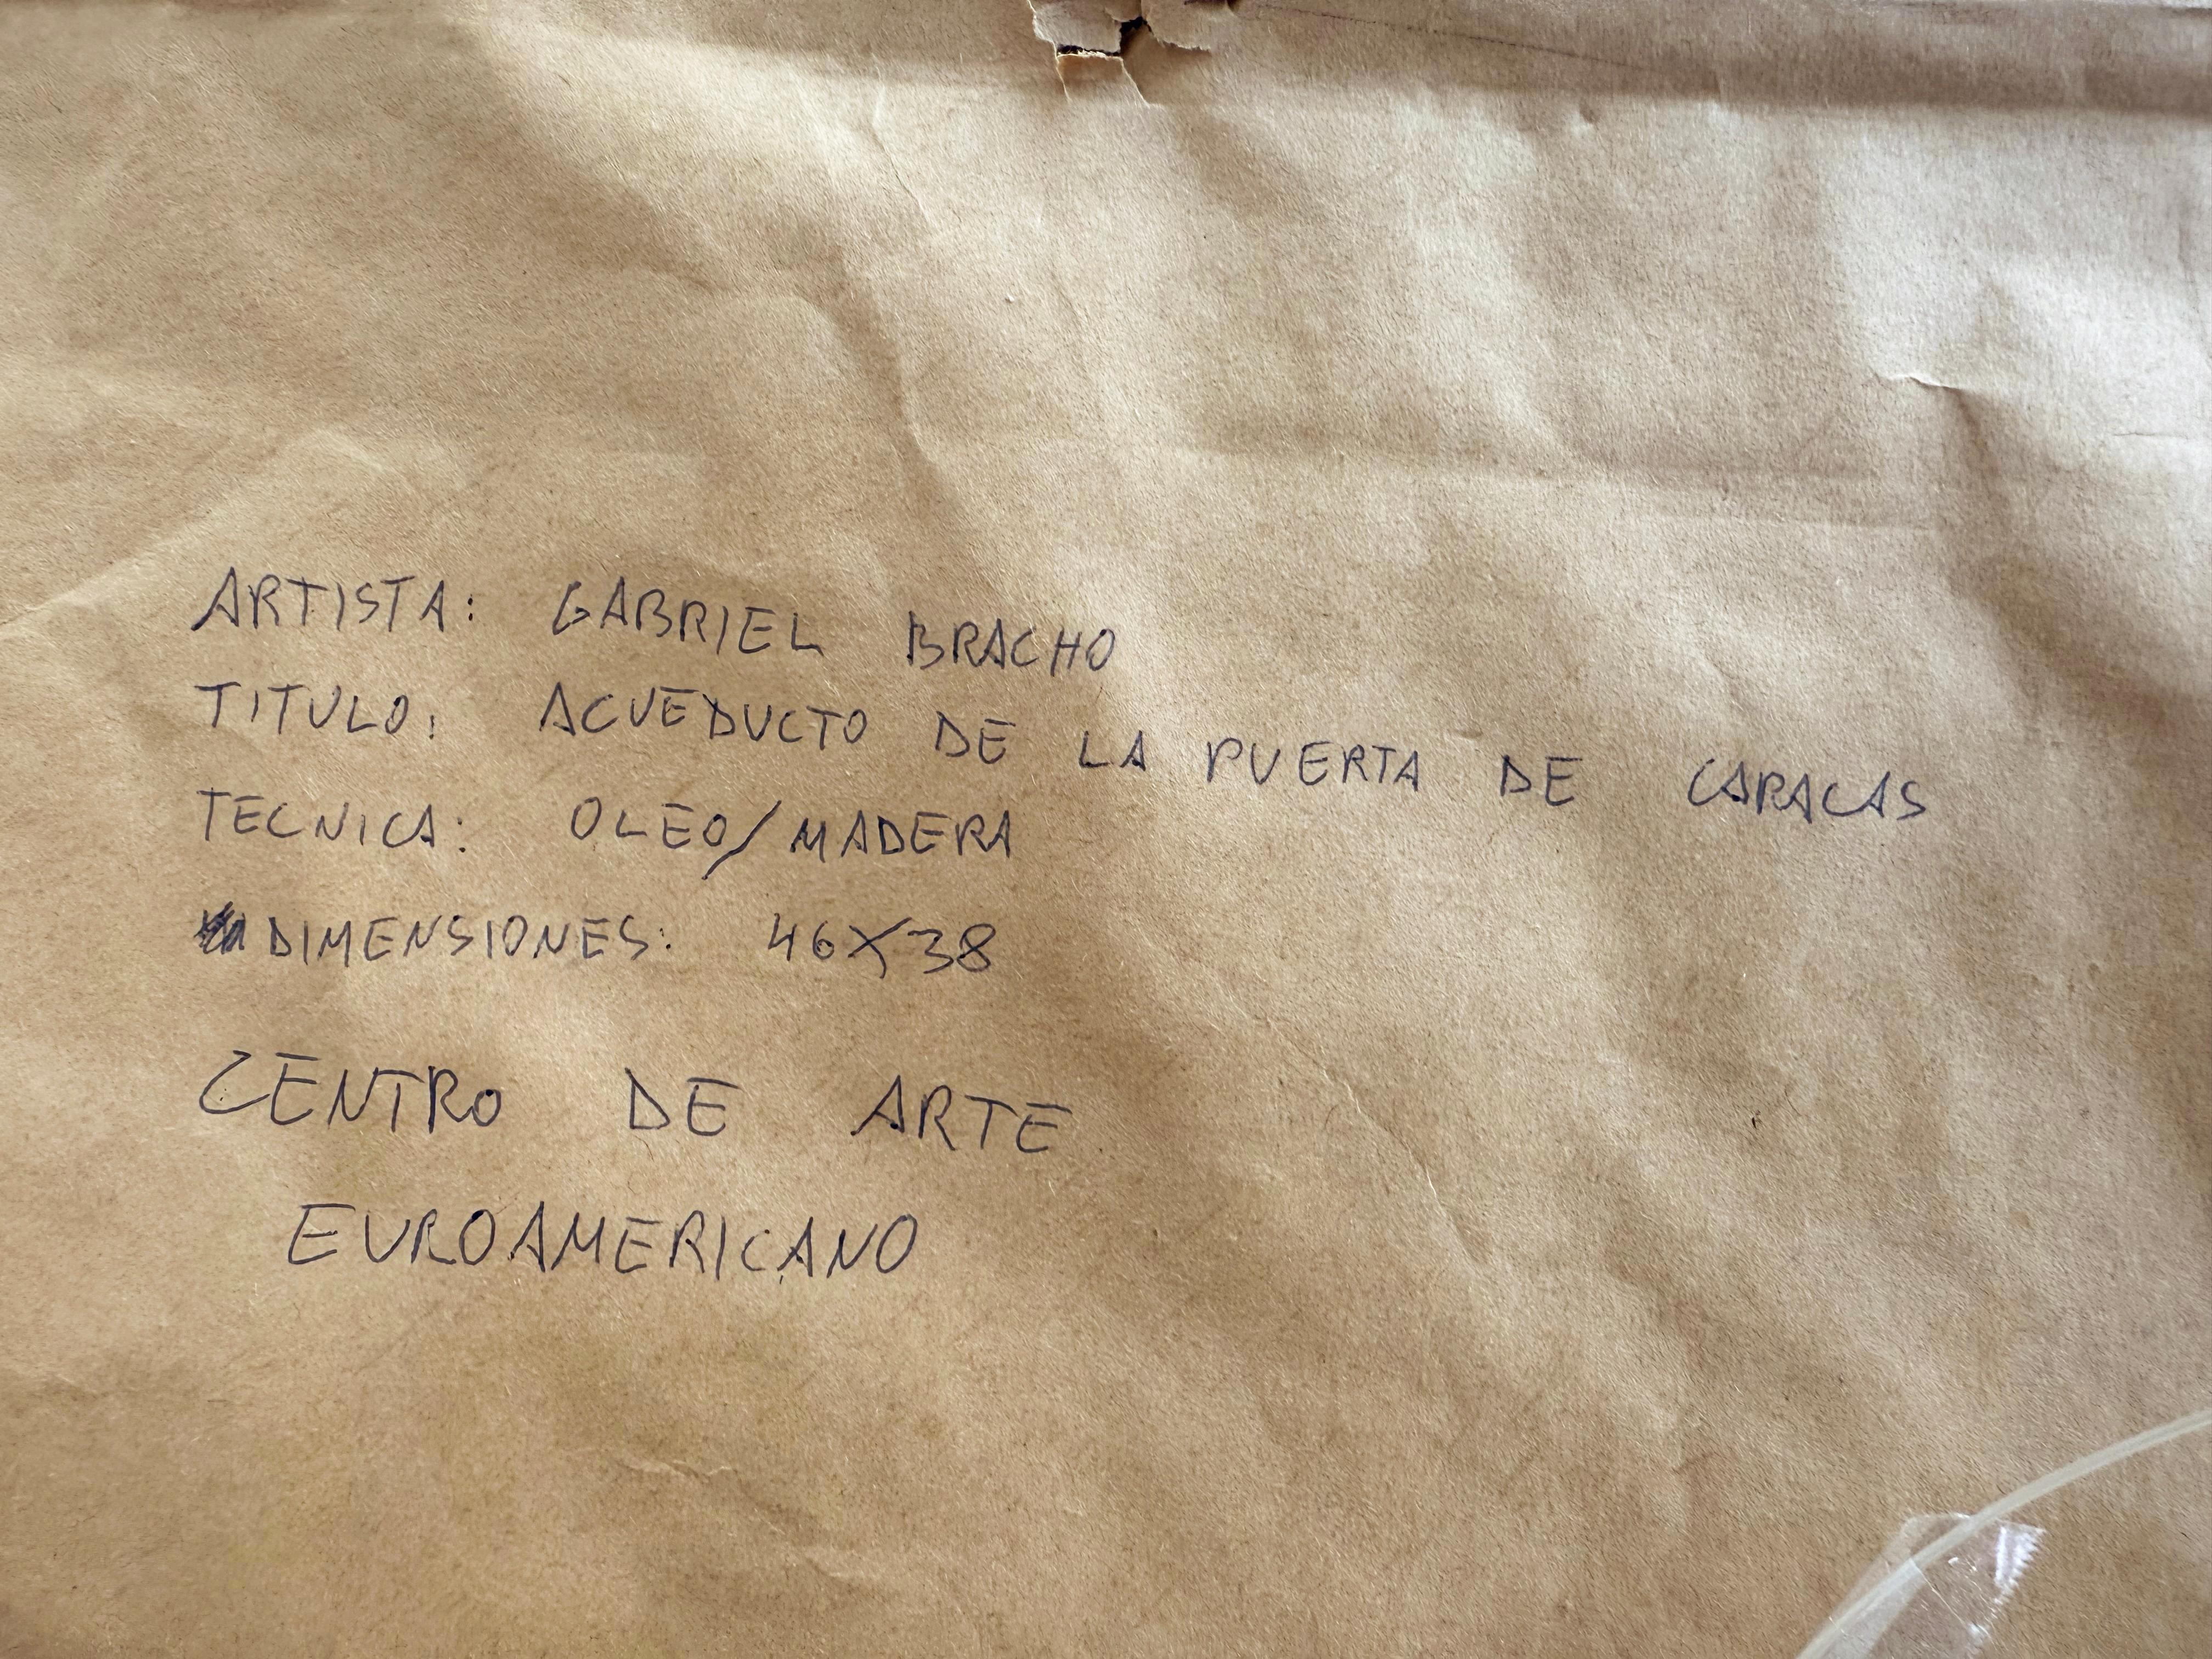 ARTISTA: GABRIEL BRACHO
TITULO: ACUEDUCTO DE LA PUERTA DE CARACAS
TECNICA: OLEO/MADERA
DIMENSIONES: 46X38
CENTRO DE ARTE
EUROAMERICANO